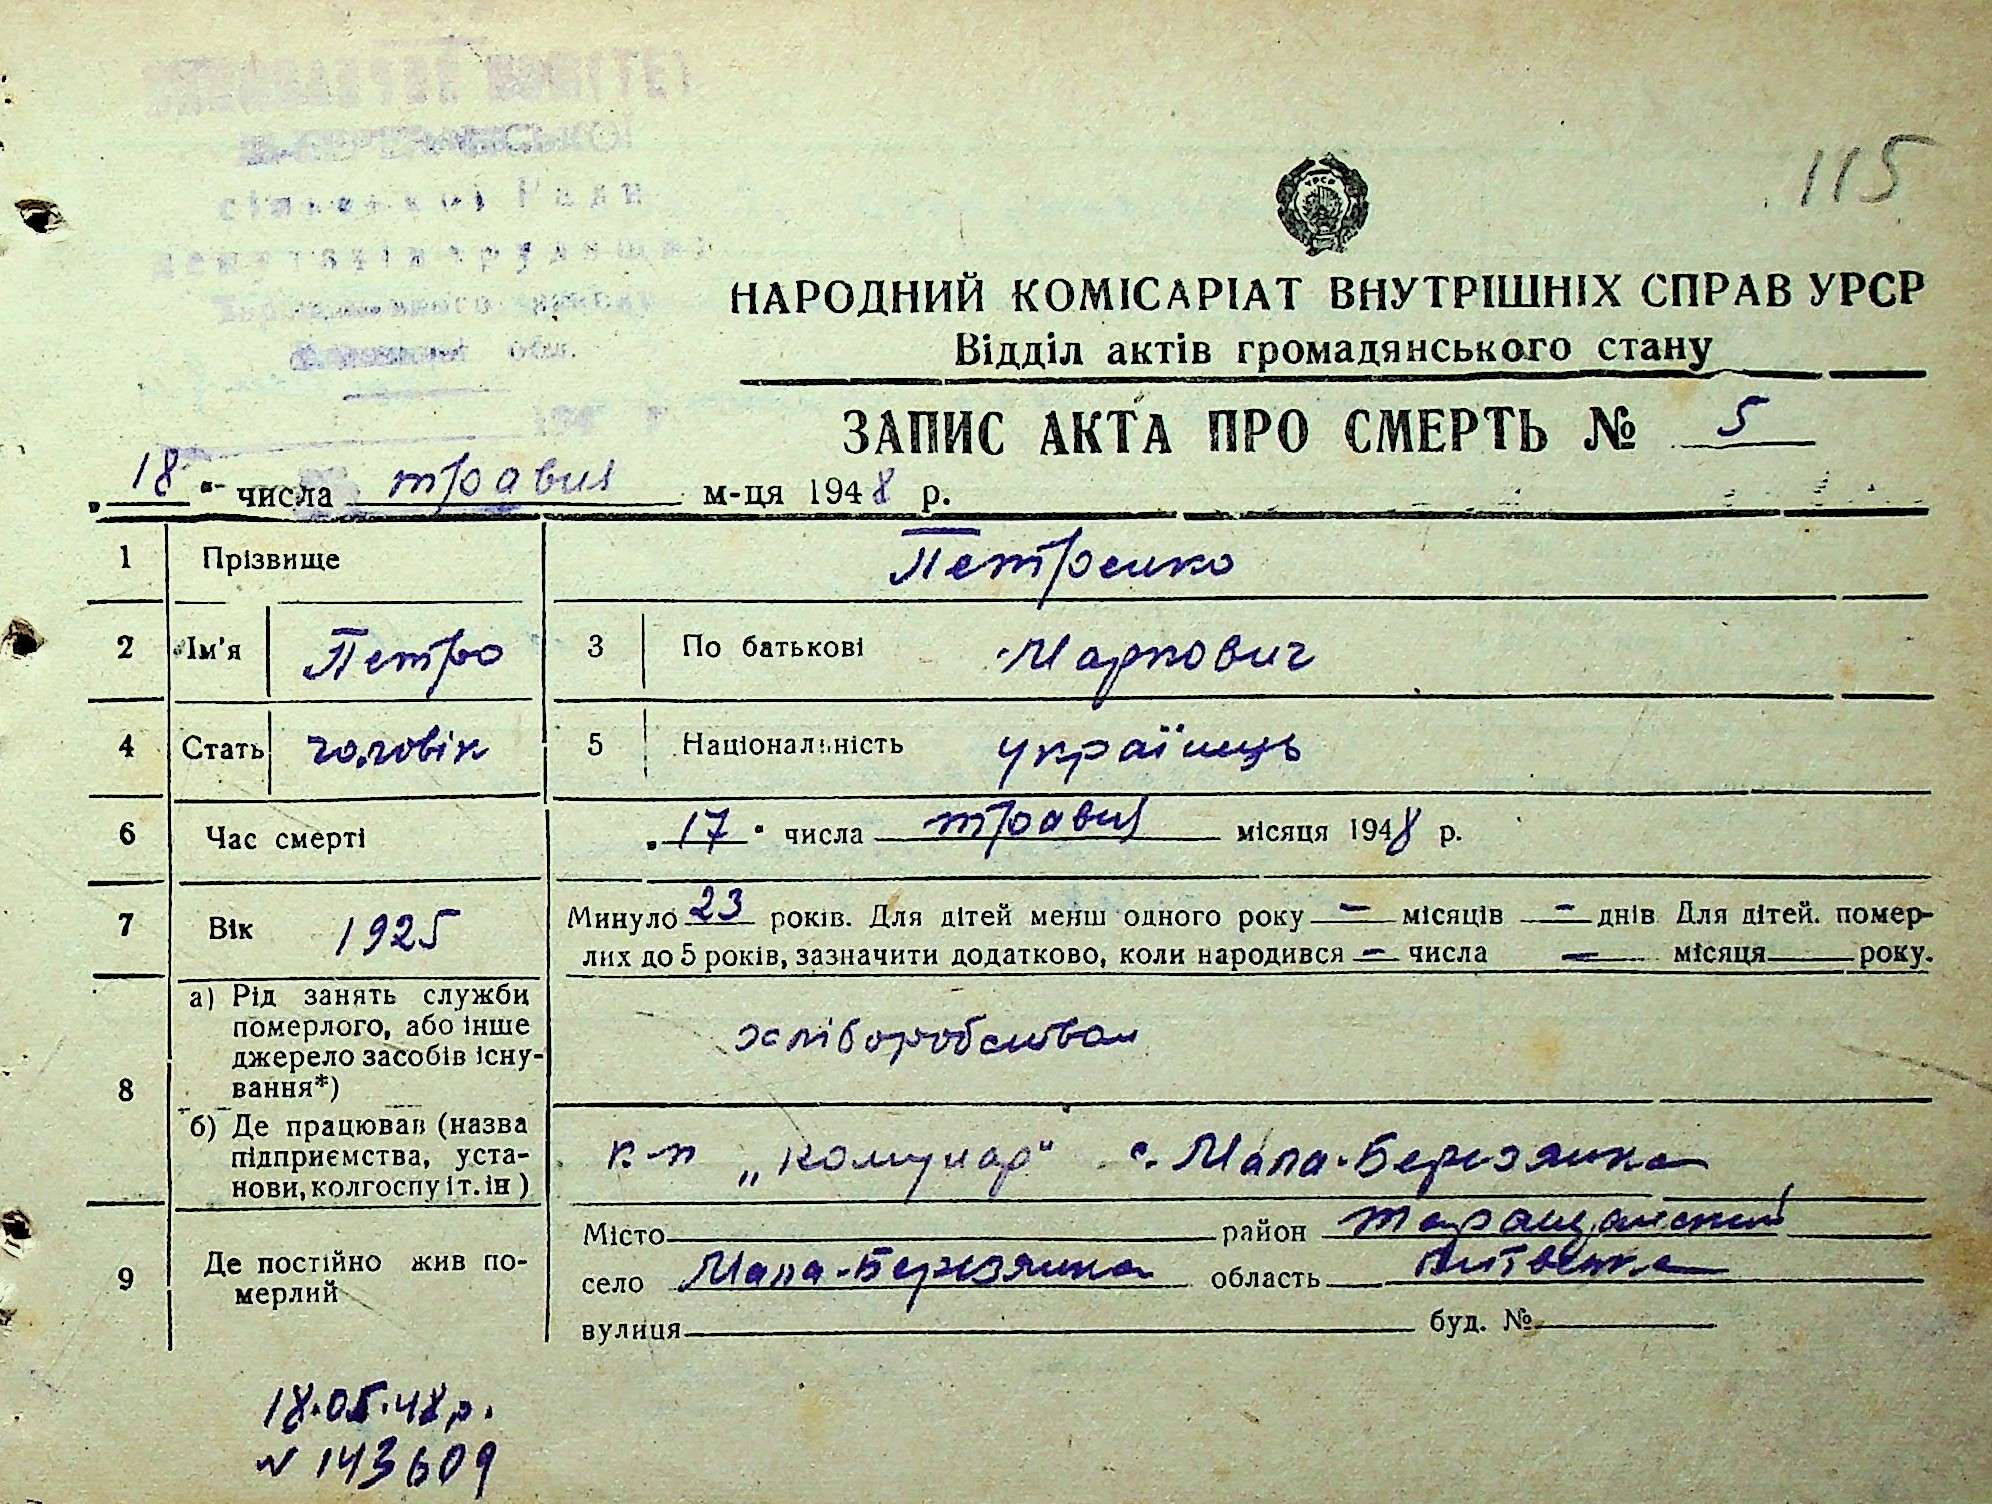 115
УРСР
НАРОДНИЙ КОМІСАРІАТ ВНУТРІШНІХ СПРАВ УРСР
Відділ актів громадянського стану
ЗАПИС АКТА ПРО СМЕРТЬ № 5
„18“ числа травня м-ця 1948 р.
1 Прізвище Петренко
2 Ім'я Петро 3 По батькові Маркович
4 Стать чоловік 5 Національність українець
6 Час смерті „17“ числа травня місяця 1948 р.
7 Вік 1925 Минуло 23 років. Для дітей менш одного року — місяців — днів Для дітей. помер-
лих до 5 років, зазначити додатково, коли народився — числа — місяця року.
8 а) Рід занять служби
померлого, або інше
джерело засобів існу-
вання*)
хліборобством
б) Де працював (назва
підприємства, уста-
нови, колгоспу і т. ін)
к-п „комунар“ с. Мала-Березянка
9 Де постійно жив по-
мерлий
Місто район Таращанский
село Мала-Березянка область
вулиця буд. №
18.05.48р.
N 143609